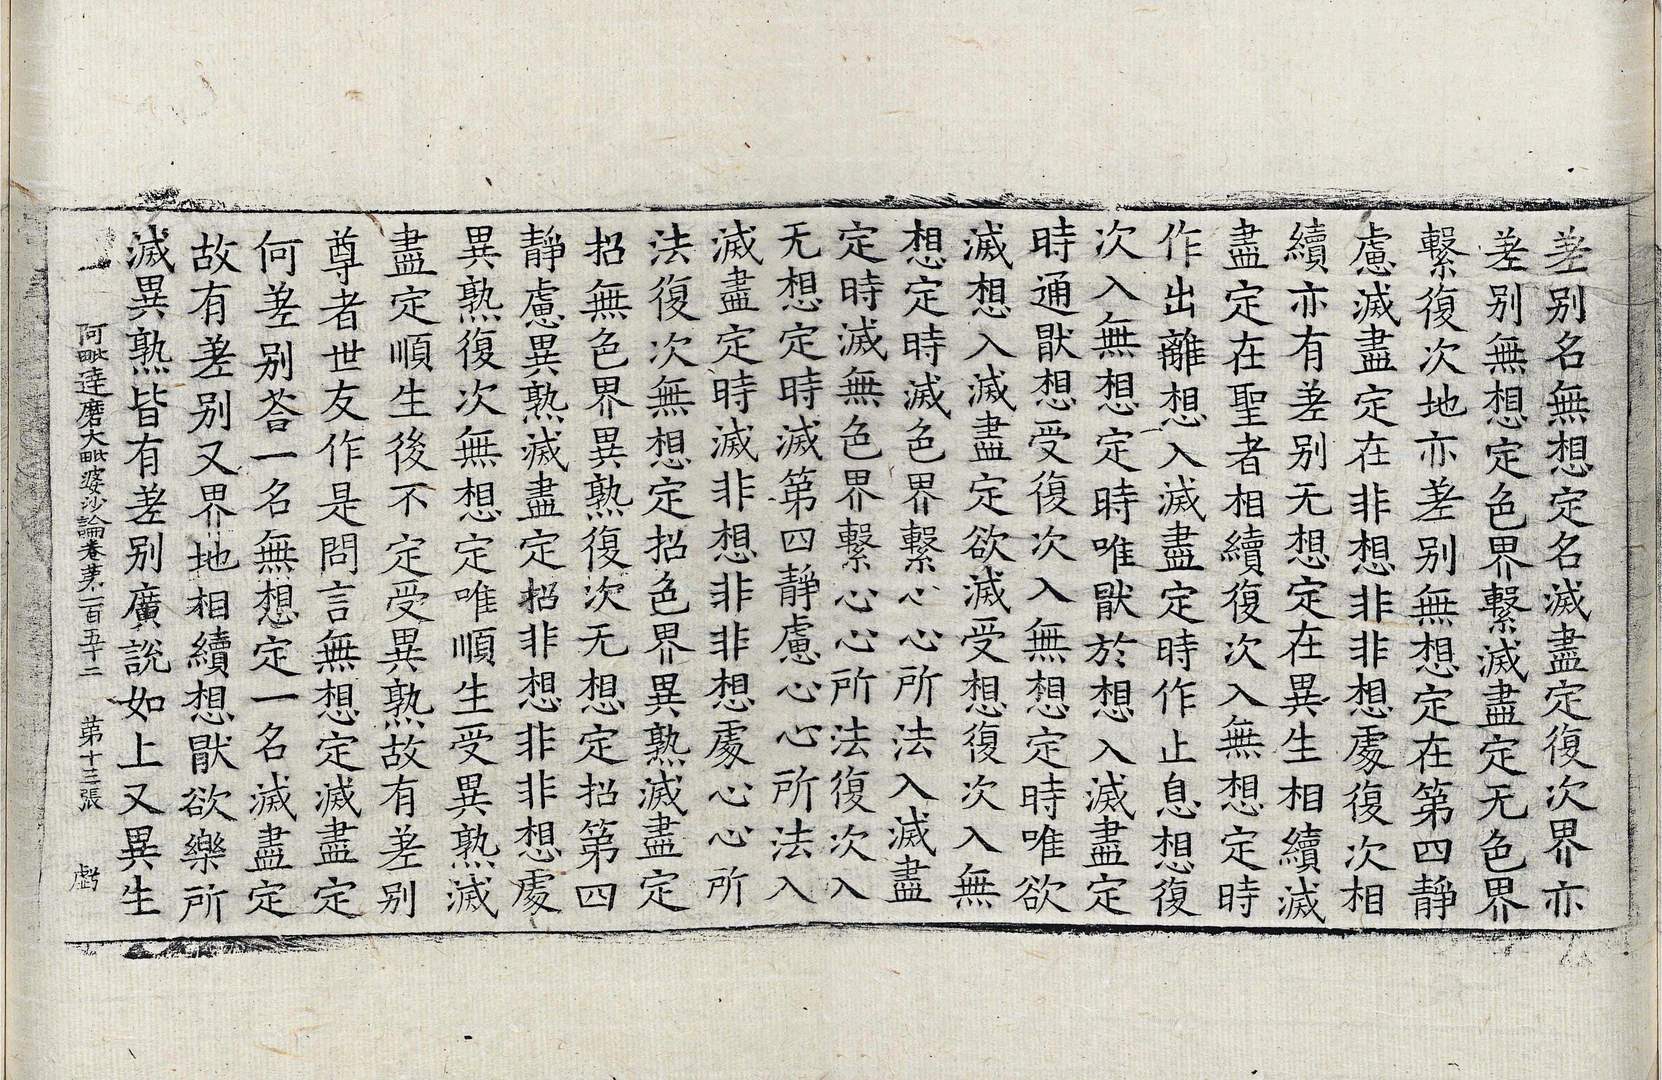 差别名無想定名滅盡定復次界亦
差别無想定色界繫滅盡定无色界
繫復次地亦差别無想定在第四靜
慮滅盡定在非想非非想處復次相
續亦有差别无想定在異生相續滅
盡定在聖者相續復次入無想定時
作出離想入滅盡定時作止息想復
次入無想定時唯猒於想入滅盡定
時通猒想受復次入無想定時唯欲
滅想入滅盡定欲滅受想復次入無
想定時滅色界繫心心所法入滅盡
定時滅無色界繫心心所法復次入
无想定時滅第四靜慮心心所法入
滅盡定時滅非想非非想處心心所
法復次無想定招色界異熟滅盡定
招無色界異熟復次无想定招第四
靜慮異熟滅盡定招非想非非想處
異熟復次無想定唯順生受異熟滅
盡定順生後不定受異熟故有差别
尊者世友作是問言無想定滅盡定
何差别荅一名無想定一名滅盡定
故有差别又界地相續想猒欲樂所
滅異熟皆有差别廣說如上又異生
阿毗達磨大毗婆沙論卷苐一百五十二 苐十三張 虧